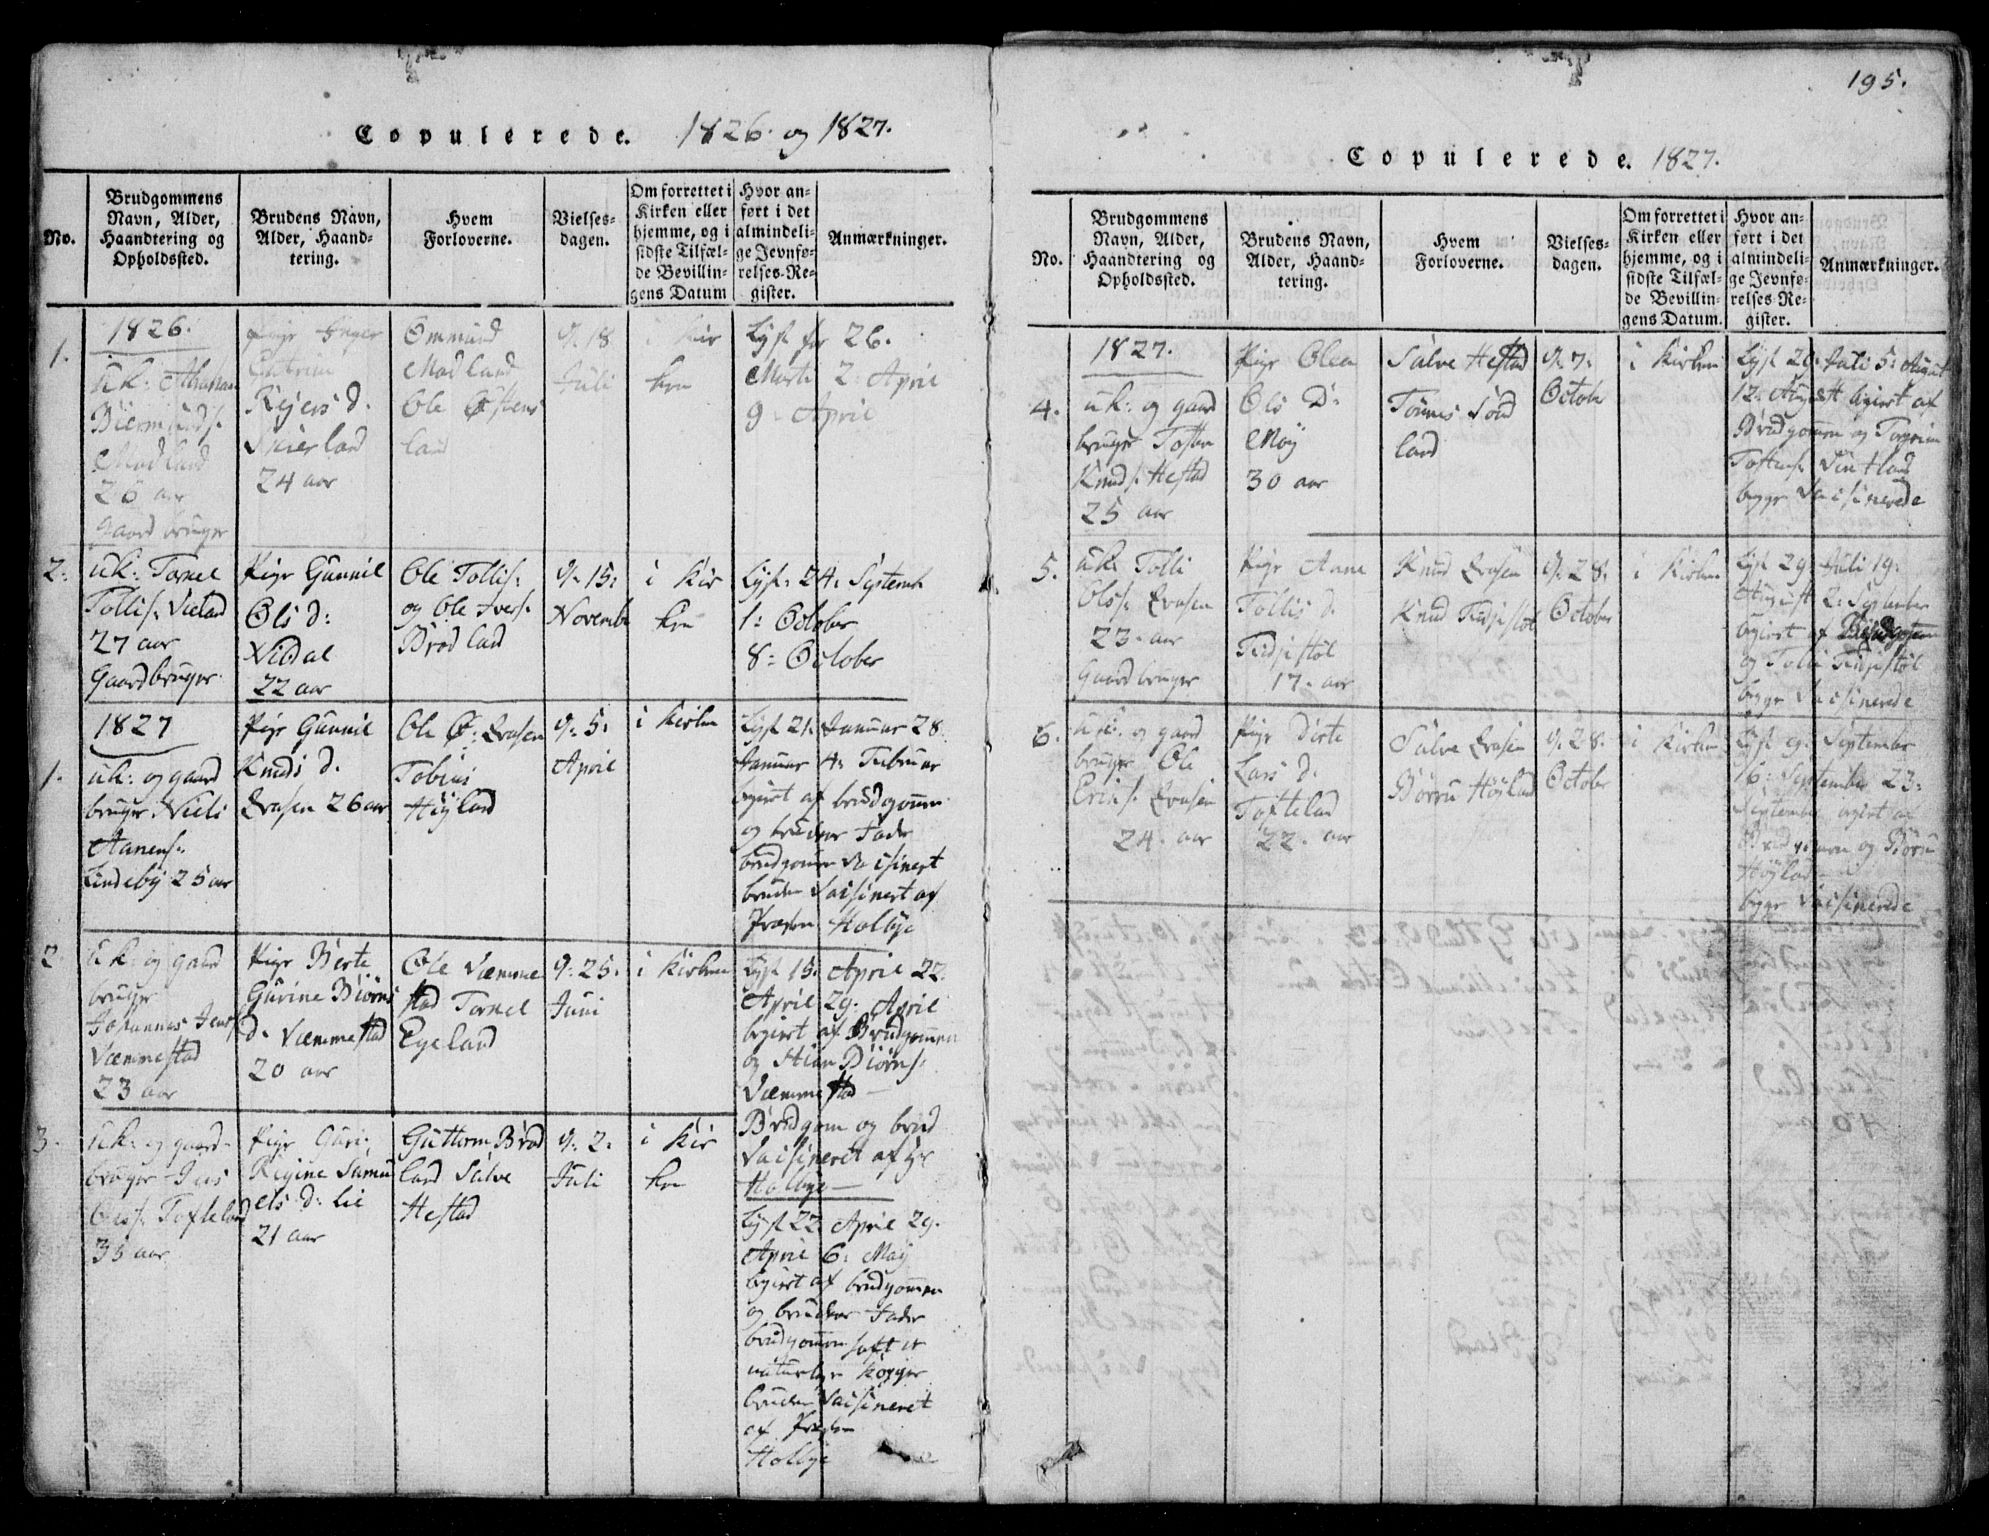 Copulerede. 1826. og 1827.
No.
Brudgommens
Navn, Alder,
Haandtering og
Opholdssted.
Brudens Navn,
Alder, Haand-
tering.
Hvem
Forloverne.
Vielses-
dagen.
Om forrettet i
Kirken eller
hjemme, og i
sidste Tilfæl-
de Bevillin-
gens Datum
Hvor an-
ført i det
almindeli-
ge Jevnfø-
relses-Re-
gister.
Anmærkninger.
1.
1826.
uk:
Madland
26 aar
gaardbruger
Pige Inger
Catrine
Rejers d.
24 aar
Ommund
Madland
Ole
land
d. 18
Juli
i Kir
ken
Lyst for 26.
Marti 2: April
9: April
2:
uk: Tarel
Tollis:
27 aar
Gaardbruger
Pige Gunnil
Ols d:
Nidal
22 aar
Ole Tollis:
og Ole Ivers:
Brødland
d. 15:
Novembr
i Kir
ken
Lyst: 24: Septemb
1: October
8: October
1.
1827
uk: og gaard
bruger Niels
Aanens:
Lindeby 25 aar
Pige Gunnil
Knuds d.
Evasen 26 aar
Ole O: Evasen
Tobias
Høyland
d. 5:
April
i Kirken
Lyst 21: Januar 28
Januar 4: Februar
begiert af brudgommen
og brudens Fader
brudgommen Vaisinert
bruden Vaisinert af
Præsten Holbye
2.
uk: og gaard
bruger
Johannes Jens:
Væmmestad
23 aar
Pige Berte
Gurine Biørns
d. Væmmestad
20 aar
Ole Væmme
stad Tarel
Egeland
d: 25:
Juni
i Kirken
Lyst 15: April 22:
April 29: April
begiert af Brudgommen
og Stian Biørns:
Væmmestad
Brudgom og brud
Vaisineret af Hr
Holbye
3.
uk: og gaard-
bruger Jens
Tofteland
33 aar
Pige Guri
Regine Samu
els d: Lie
21 aar
Guttorm Brød
land Salve
Hestad
d: 2:
Juli
i Kir
ken
Lyst 22 April 29.
April 6: May
begiert af brudgommen
og brudens Fader
brudgommen haft de
naturlige Kopper
bruden Vaisineret
af Præsten
Holbye
195.
Copulerede. 1827.
No.
Brudgommens
Navn, Alder,
Haandtering og
Opholdssted.
Brudens Navn,
Alder, Haand-
tering.
Hvem
Forloverne.
Vielses-
dagen.
Om forrettet i
Kirken eller
hjemme, og i
sidste Tilfæl-
de Bevillin-
gens Datum.
Hvor an-
ført i det
almindeli-
ge Jevnfø-
relses-Re-
gister.
Anmærkninger.
4.
1827.
uk: og gaard
bruger Tosten
Knuds: Hestad
25 aar
Pige Olea
Ols D:
Møy
30 aar
Salve Hestad
Tønnes Sød
land
d. 7:
October
i Kirken
Lyst 29: Juli 5: August
12: August begiert af
Brudgommen og
Tostens:
begge Vaisinerede
5.
uk: Tolli
Ols: Evasen
23. aar
Gaardbruger
Pige Anne
Tollis d.
Tidjistøl
17. aar
Knud Evasen
Knud Tidjistøl
d: 28.
October
i Kirken
Lyst 29: Juli 19:
August 2: September
begiert af Brudgommen
og Tolli Tidjistøl
begge Vaisinerede
6.
uk: og gaard
bruger Ole
Erins: Evasen
24. aar
Pige Dirte
Lars d.
Tofteland
22. aar
Salve Evasen
Børru Høyland
d: 28.
October
i Kirken
Lyst 9: September
16: September 23:
September begiert af
Brudgommen og Børru
Høyland
begge Vaisinerede